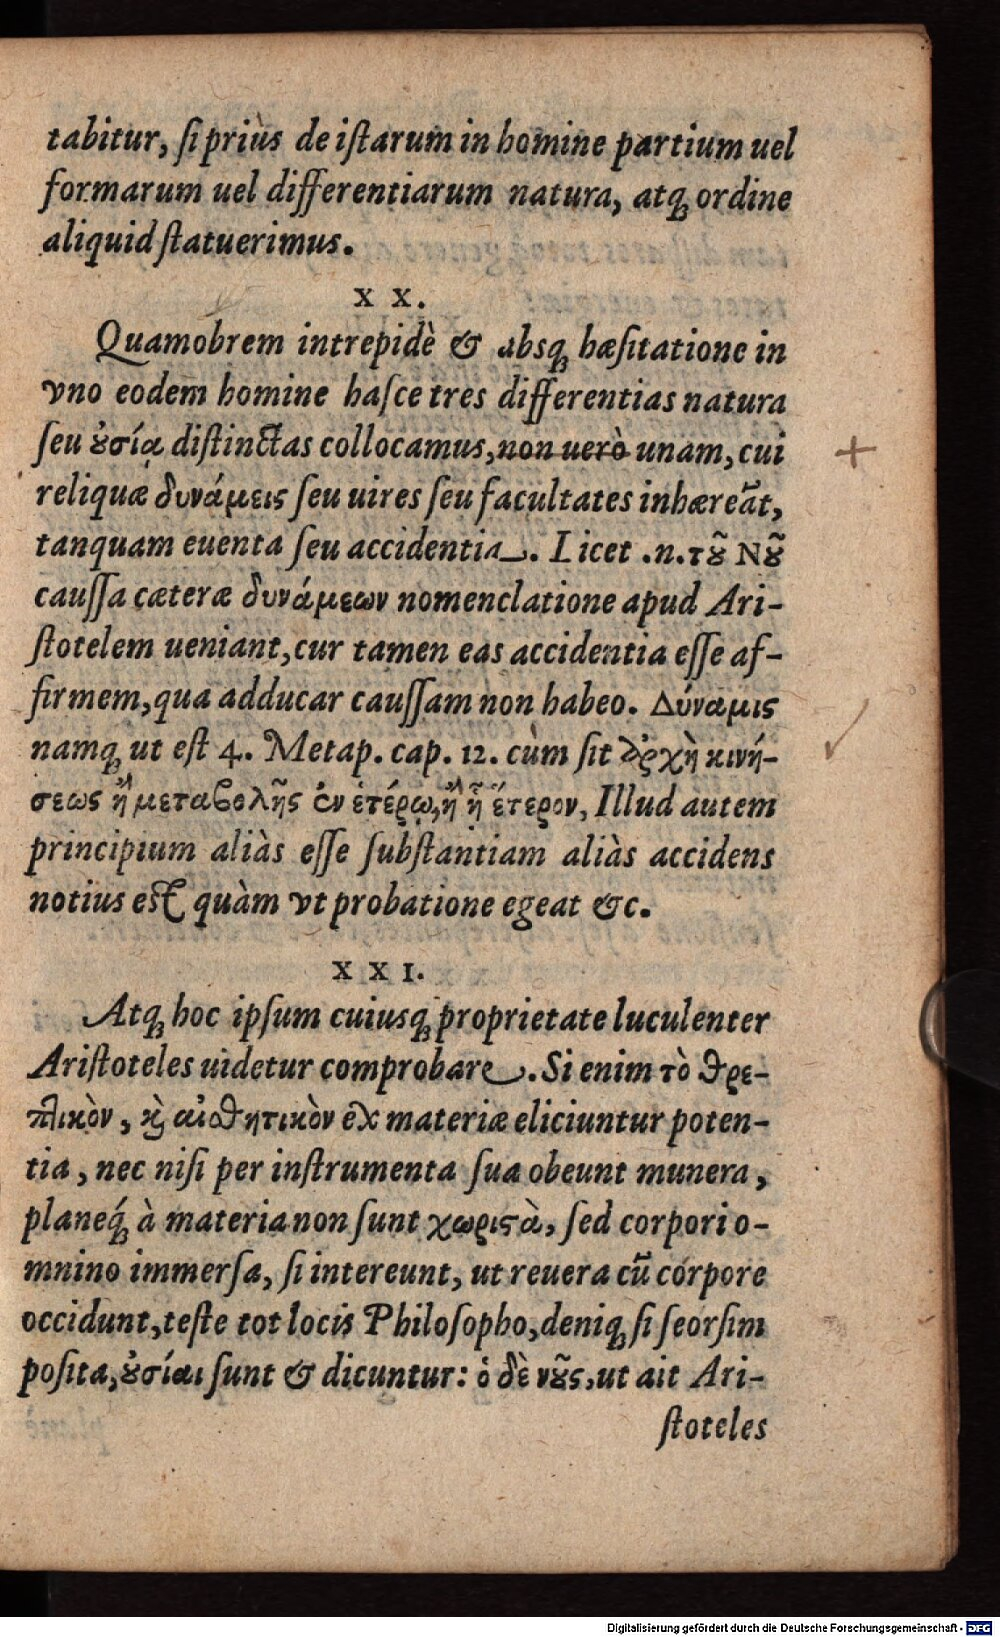 tabitur, ſi priùs de iſtarum in homine partium uel
formarum uel differentiarum natura, atq; ordine
aliquid ſtatuerimus.
XX.
Quamobrem intrepidè & absq; hæſitatione in
vno eodem homine haſce tres differentias natura
ſeu ȣσίᾳ diſtinctas collocamus, non uerò unam, cui
reliquæ δυνάμεις ſeu uires ſeu facultates inhæreãt,
tanquam euenta ſeu accidentia. Licet .n. τȣ͂ Νȣ͂
cauſſa cæteræ δυνάμεων nomenclatione apud Ari-
ſtotelem ueniant, cur tamen eas accidentia eſſe af-
firmem, qua adducar cauſſam non habeo. Δύναμις
namq; ut eſt 4. Metap. cap. 12. cùm ſit ἀρχὴ κινή-
σεως ἢ μεταβολῆς ἐν ἑτέρῳ, ἢ ᾗ ἕτερον, Illud autem
principium aliàs eſſe ſubſtantiam aliàs accidens
notius eſt quàm vt probatione egeat &c.
XXI.
Atq; hoc ipſum cuiusq; proprietate luculenter
Ariſtoteles uidetur comprobare. Si enim τὸ θρε-
πτικὸν, ϗ̀ αἰσθητικὸν ex materiæ eliciuntur poten-
tia, nec niſi per inſtrumenta ſua obeunt munera,
planeq́; à materia non ſunt χωριϛὰ, ſed corpori o-
mnino immerſa, ſi intereunt, ut reuera cũ corpore
occidunt, teſte tot locis Philoſopho, deniq; ſi ſeorſim
poſita, ȣσίαι ſunt & dicuntur: ὁ δὲ νȣ͂ς, ut ait Ari-
ſtoteles
Digitalisierung gefördert durch die Deutsche Forschungsgemeinschaft - DFG